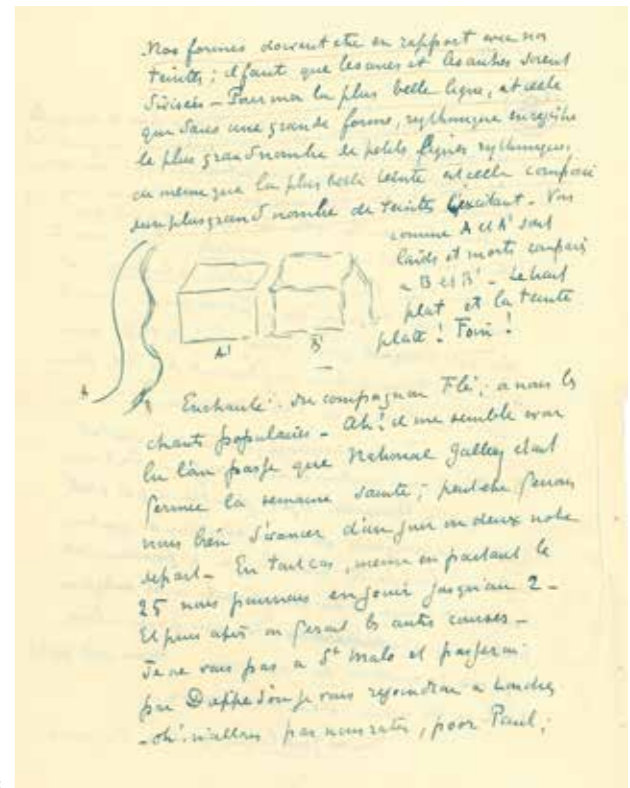 Nos formes doivent etre en rapport avec nos
teintes ; il faut que les unes et les autres soient
divisées – Pour moi la plus belle ligne, est celle
qui dans une grande forme, rythmique enregistre
le plus grand nombre de petites lignes rythmiques
de meme que la plus belle teinte est celle composée
du plus grand nombre de teintes l'excitant – Vous
comme A et A' sont
laids et morts comparés
a B et B' – Le haut
plat et la teinte
plate ! Foin !
A
A'
B'
Enchanté du compagnon Flé ; a nous les
chants populaires – Ah ! il me semble avoir
lu l'an passé que National Gallery etait
fermée la semaine sainte ; peut etre ferions
nous bien d'avancer d'un jour ou deux notre
depart – En tout cas, meme en partant le
25 nous pourrons en jouir jusqu'au 2 –
Et puis apres on ferait les autres courses –
Je ne vais pas a St Malo et passerai
par Dieppe d'ou je vais rejoindrai a Londres
– oh ! n'allons pas nous rater, poor Paul ;